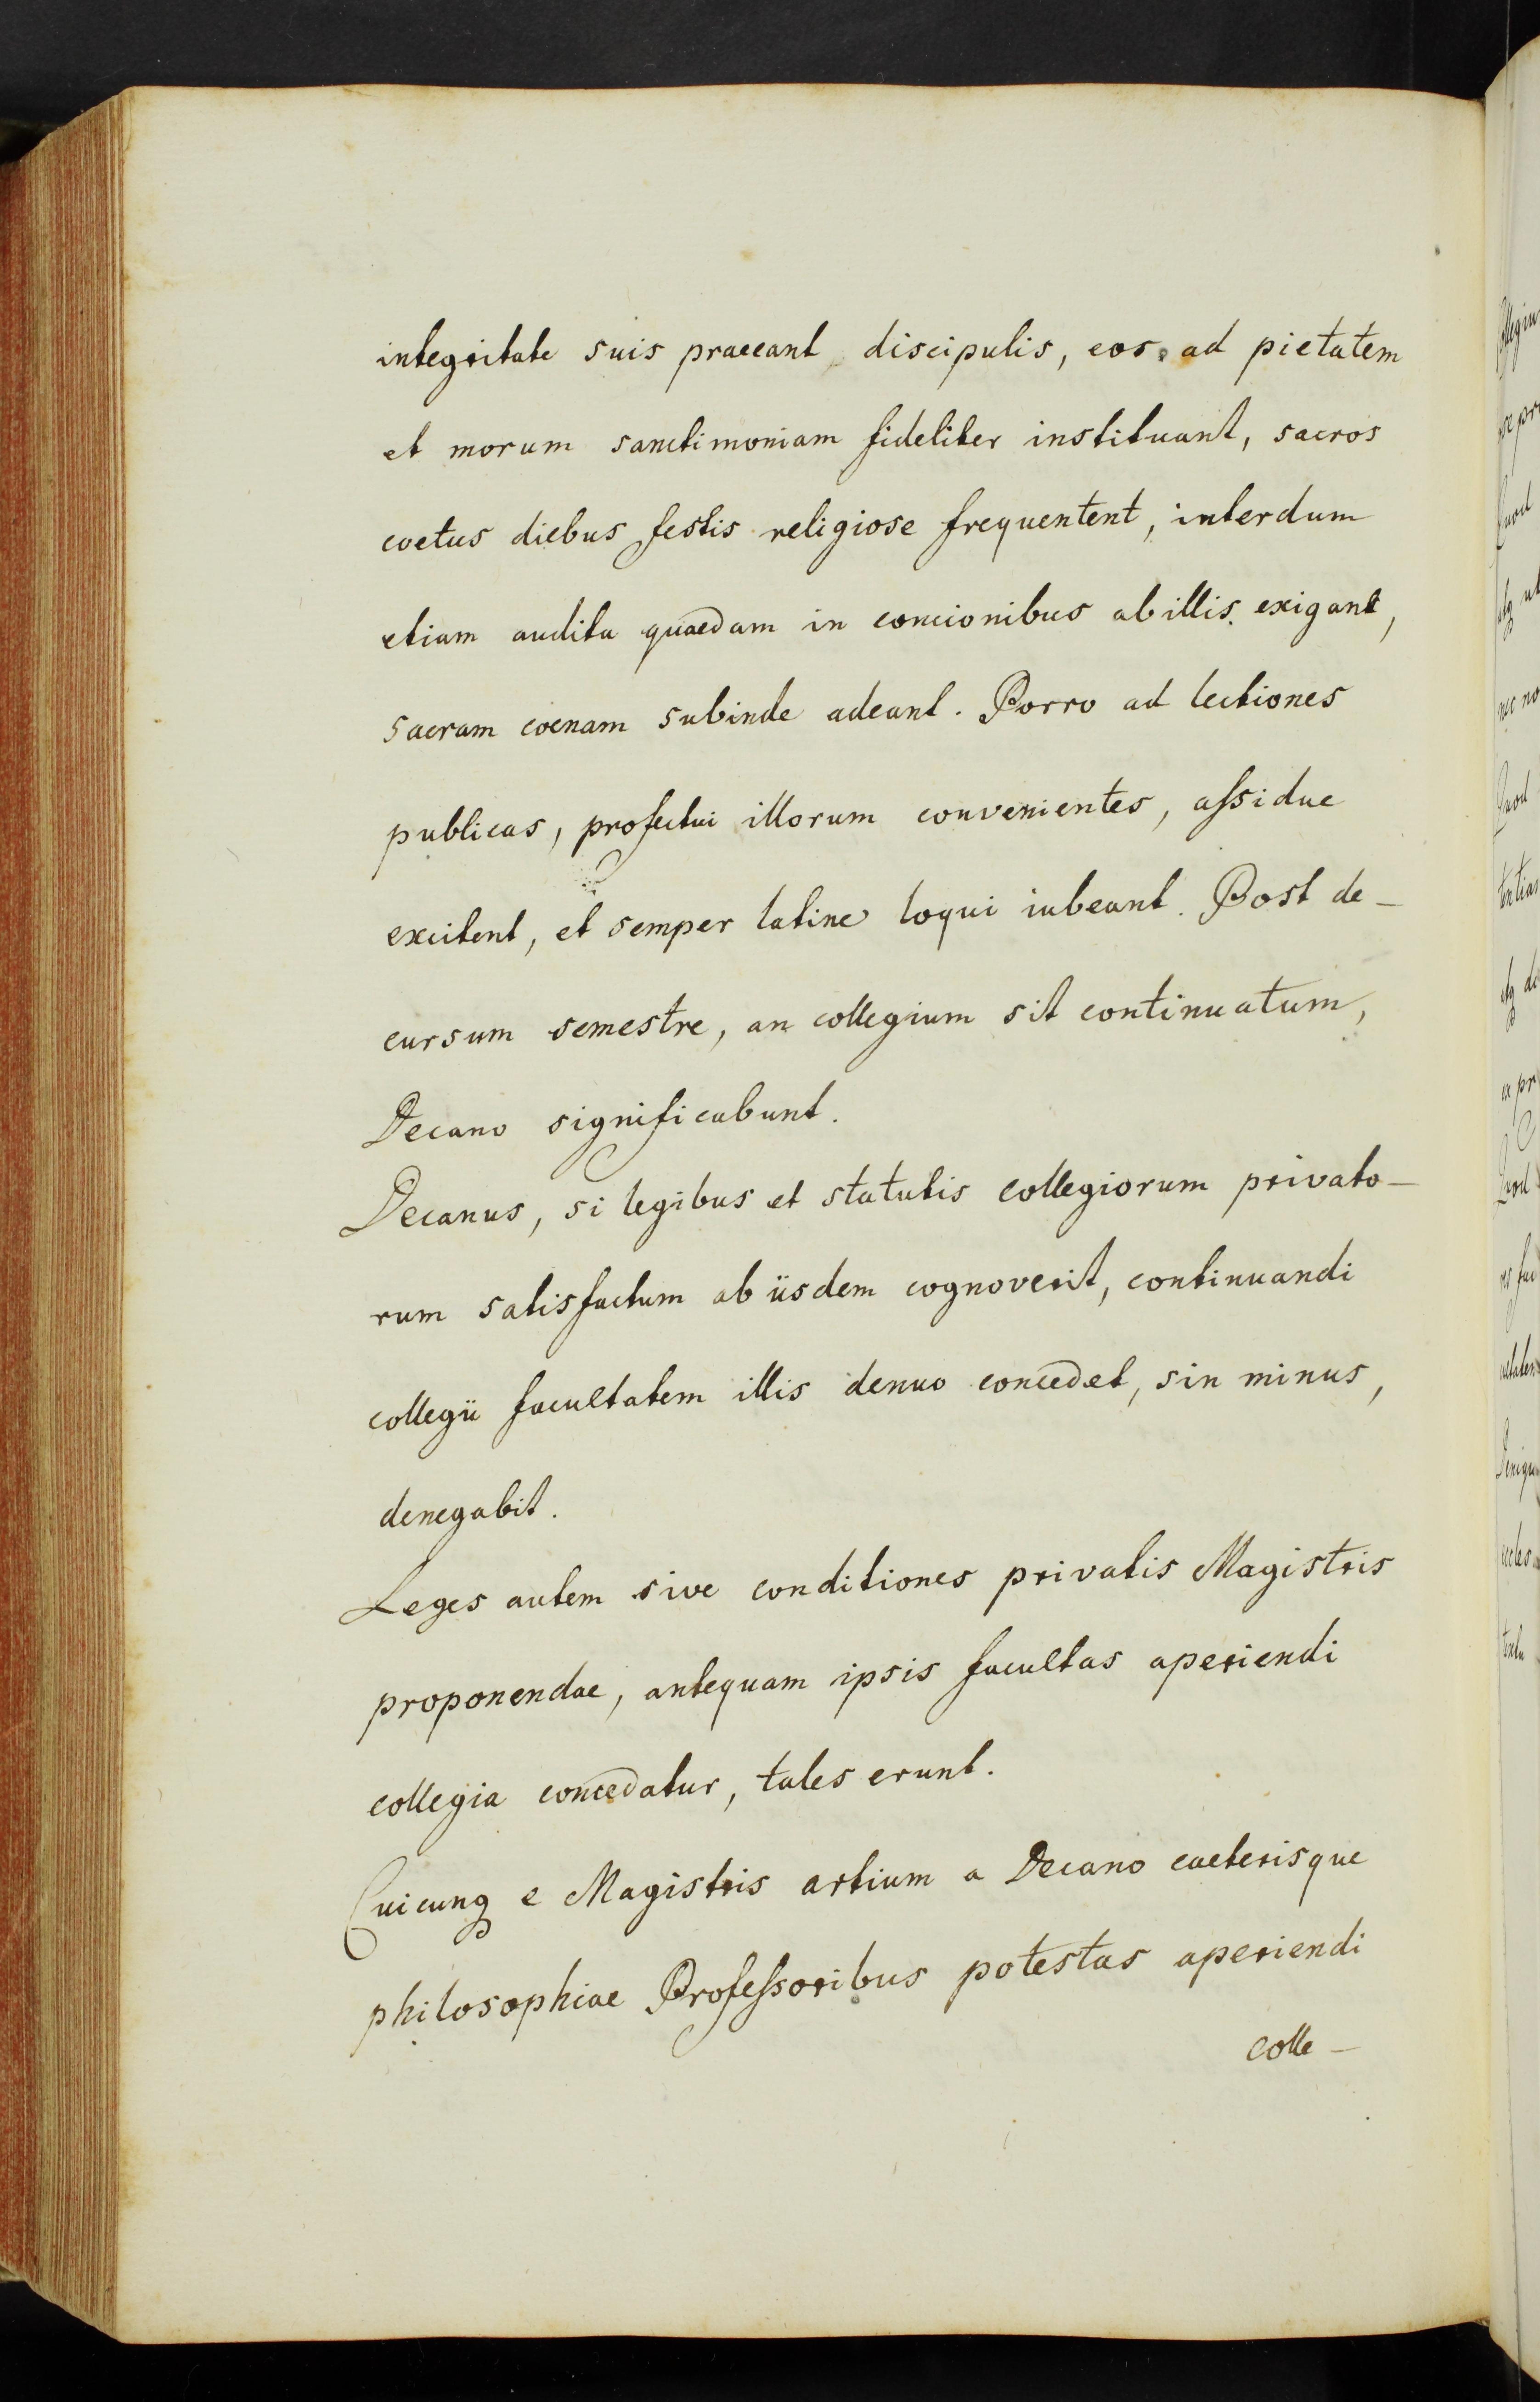 integritate suis praeeant discipulis, eos ad pietatem
et morum sanctimoniam fideliter instituant, sacros
coetus diebus festis religiose frequentent, interdum
etiam audita quaedam in concionibus ab illis exigant,
sacram coenam subinde adeant. Porro ad lectiones
publicas, profectui illorum convenientes, assidue
excitent, et semper latine loqui iubeant. Post de-
cursum semestre, an collegium sit continuatum,
Decano significabunt.
Decanus, si legibus et statutis collegiorum privato-
rum satisfactum ab iisdem cognoverit, continuandi
collegii facultatem illis denuo concedet, sin minus,
denegabit.
Leges autem sive conditiones privatis Magistris
proponendae, antequam ipsis facultas aperiendi
collegia concedatur, tales erunt.
Cuicunq e Magistris artium a Decano caeterisque
philosophiae Professoribus potestas aperiendi
colle-